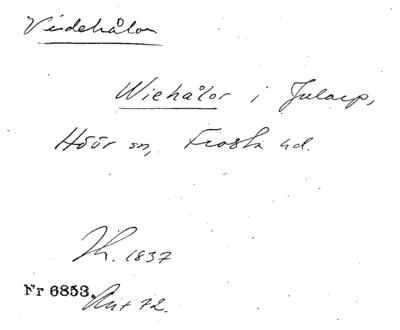 Videhålor
Wiehålor i Jularp,
Höör sn, Frosta hd.
Th. 1837
Nr 6853. Ant 72.